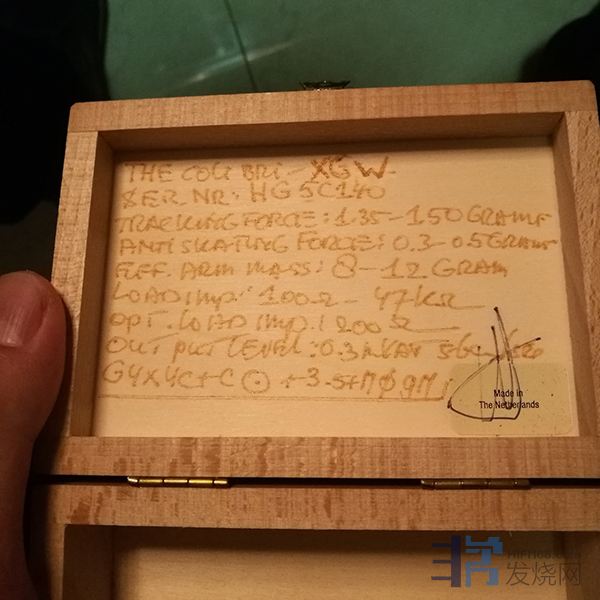 THE COLIBRI - XGW
SER. NR. HG5C140
TRACKING FORCE: 1.35-1.50 GRAMF
ANTI SKATING FORCE: 0.3-0.5 GRAMF
EFF. ARM MASS: 8-12 GRAM
LOAD IMP.: 100Ω - 47KΩ
OPT. LOAD IMP.: 200Ω
OUTPUT LEVEL: 0.3
Made in
The Netherlands
发烧网